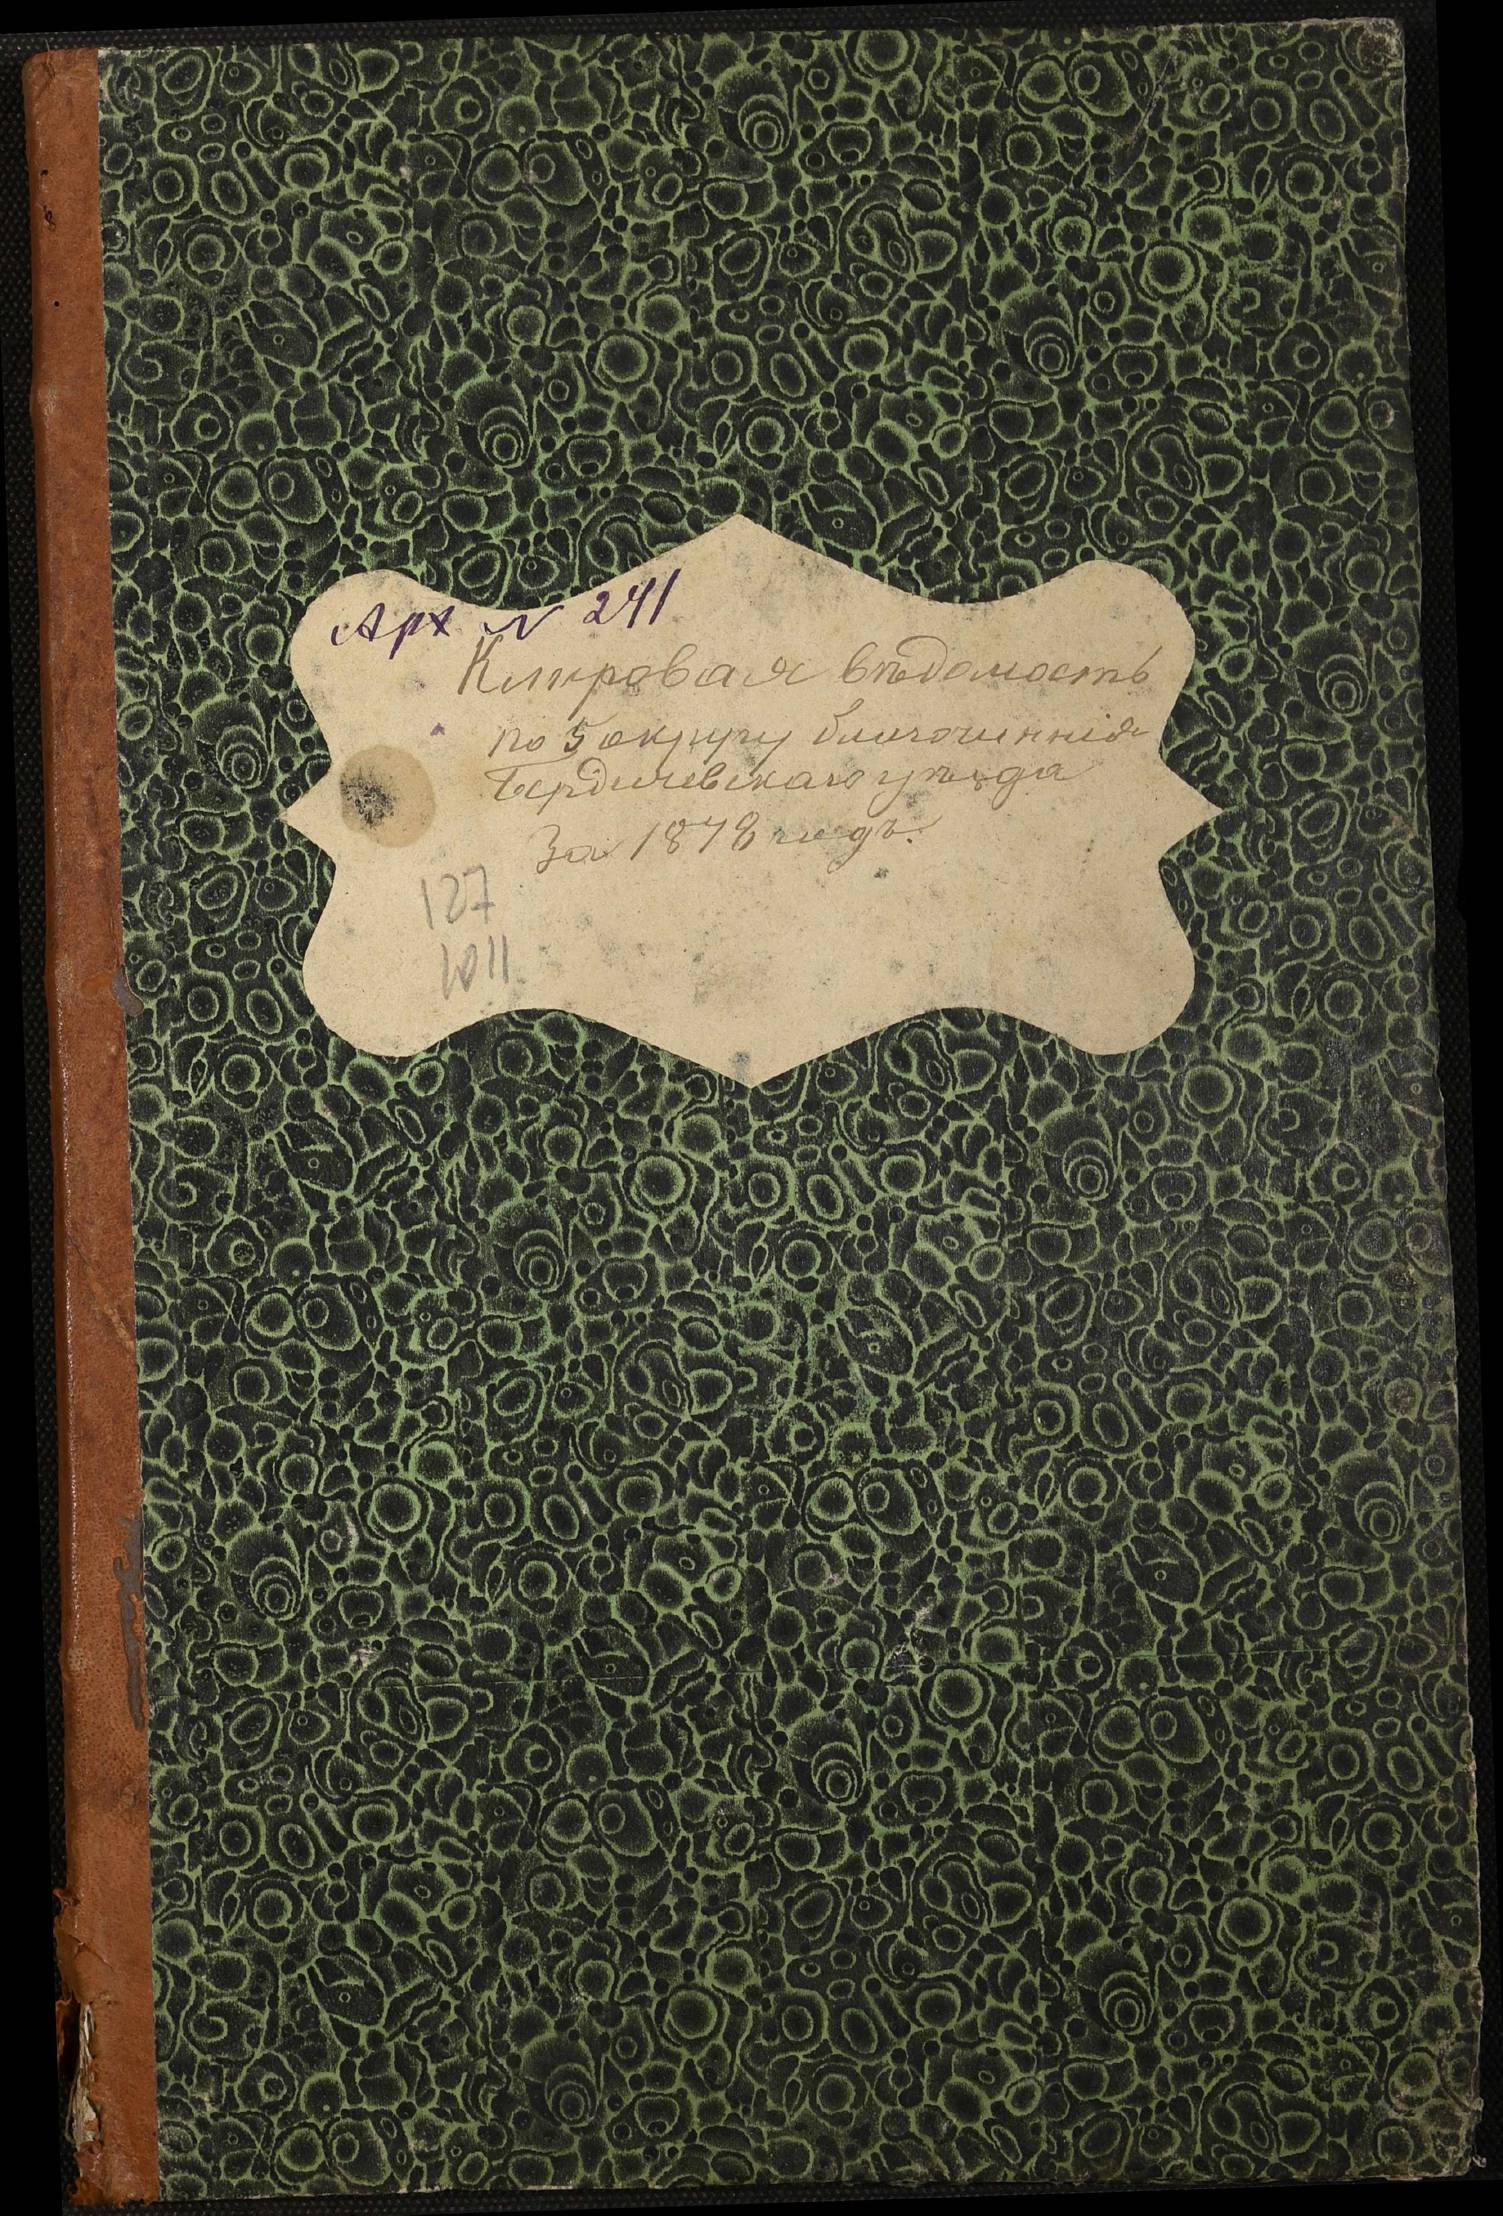 Арх № 241
Клировая вѣдомость
по 5 округу благочиннія
Бердичевскаго уѣзда
За 1878 годъ.
127
1011